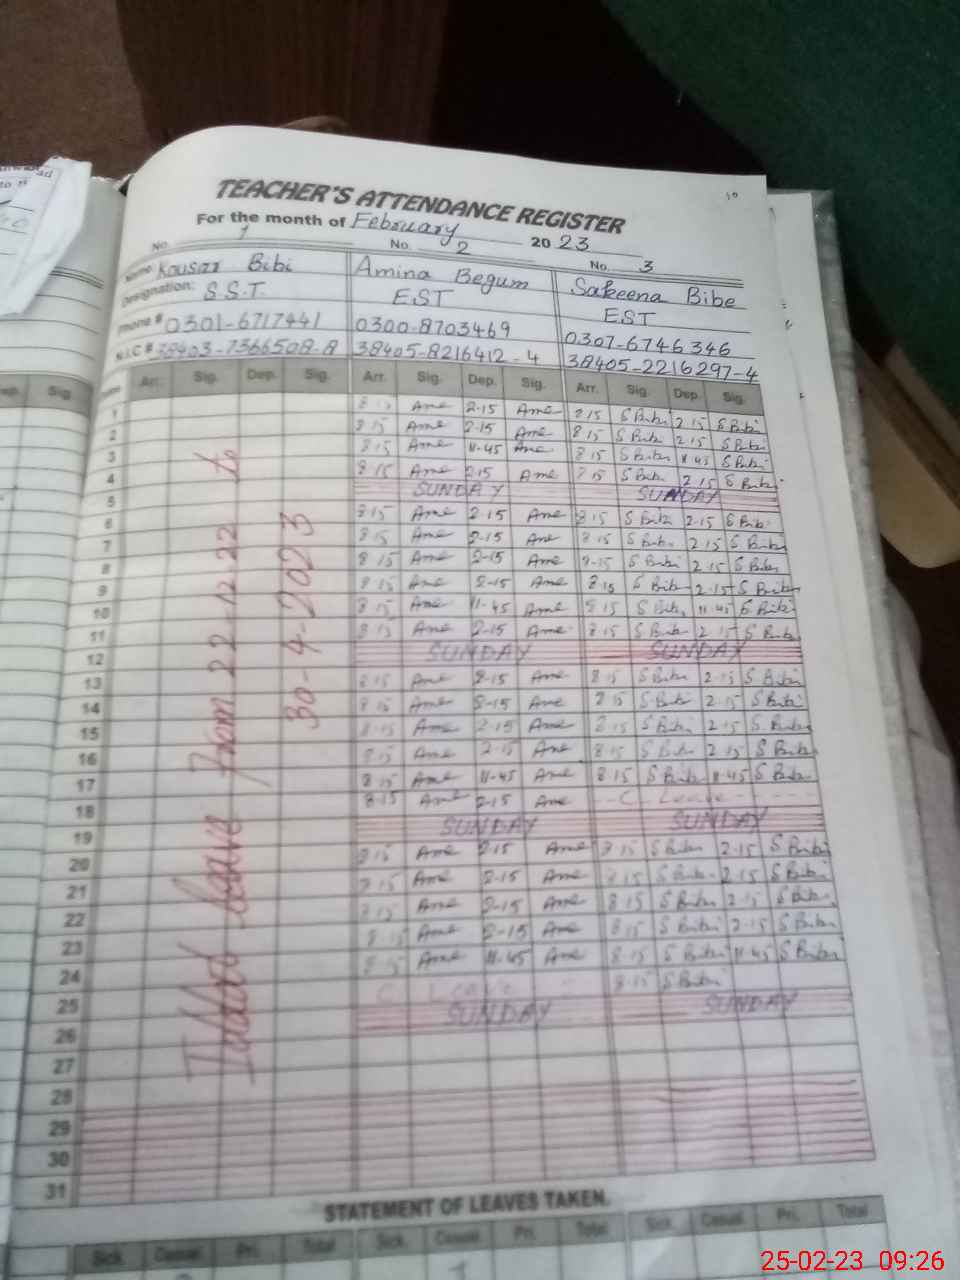 TEACHER'S ATTENDANCE REGISTER
For the month of February 2023
No. 1 No. 2 No. 3
Name: Kousar Bibi Amina Begum Sakeena Bibe
Designation: S.S.T. EST EST
Phone # 0301-6717441 0300-8703469 0307-6746346
N.I.C # 38403-7366508-8 38405-8216412-4 38405-2216297-4
Arr. Sig. Dep. Sig. Arr. Sig. Dep. Sig. Arr. Sig. Dep. Sig.
1 8 15 Ame 2-15 Ame 8 15 S Bibi 2 15 S Bibi
2 8 15 Ame 2-15 Ame 8 15 S Bibi 2 15 S Bibi
3 8 15 Ame 11-45 Ame 8 15 S Bibi 11 45 S Bibi
4 8 15 Ame 2 15 Ame 8 15 S Bibi 2 15 S Bibi
5 SUNDAY SUNDAY
6 8 15 Ame 2-15 Ame 8 15 S Bibi 2-15 S Bibi
7 8 15 Ame 2-15 Ame 8 15 S Bibi 2 15 S Bibi
8 8 15 Ame 2-15 Ame 8-15 S Bibi 2 15 S Bibi
9 8 15 Ame 2-15 Ame 8 15 S Bibi 2-15 S Bibi
10 8 15 Ame 11-45 Ame 8 15 S Bibi 11-45 S Bibi
11 8 15 Ame 2-15 Ame 8 15 S Bibi 2 15 S Bibi
12 SUNDAY SUNDAY
13 8 15 Ame 2-15 Ame 8 15 S Bibi 2-15 S Bibi
14 8 15 Ame 2-15 Ame 8 15 S Bibi 2-15 S Bibi
15 8-15 Ame 2-15 Ame 8 15 S Bibi 2-15 S Bibi
16 8 15 Ame 2-15 Ame 8 15 S Bibi 2 15 S Bibi
17 8 15 Ame 11-45 Ame 8 15 S Bibi 11-45 S Bibi
18 8-15 Ame 2-15 Ame C Leave
19 SUNDAY SUNDAY
20 8 15 Ame 2 15 Ame 8 15 S Bibi 2-15 S Bibi
21 8 15 Ame 2-15 Ame 8 15 S Bibi 2-15 S Bibi
22 8 15 Ame 2-15 Ame 8 15 S Bibi 2 15 S Bibi
23 8 15 Ame 2-15 Ame 8 15 S Bibi 2-15 S Bibi
24 8 15 Ame 11-45 Ame 8-15 S Bibi 11 45 S Bibi
25 C Leave 8-15 S Bibi
26 SUNDAY SUNDAY
27
28
29
30
31
Iddat leave From 22-12.22 to
30-4-2023
STATEMENT OF LEAVES TAKEN.
Sick Casual Pri. Total Sick. Casual. Pri. Total. Sick. Casual. Pri. Total
25-02-23 09:26